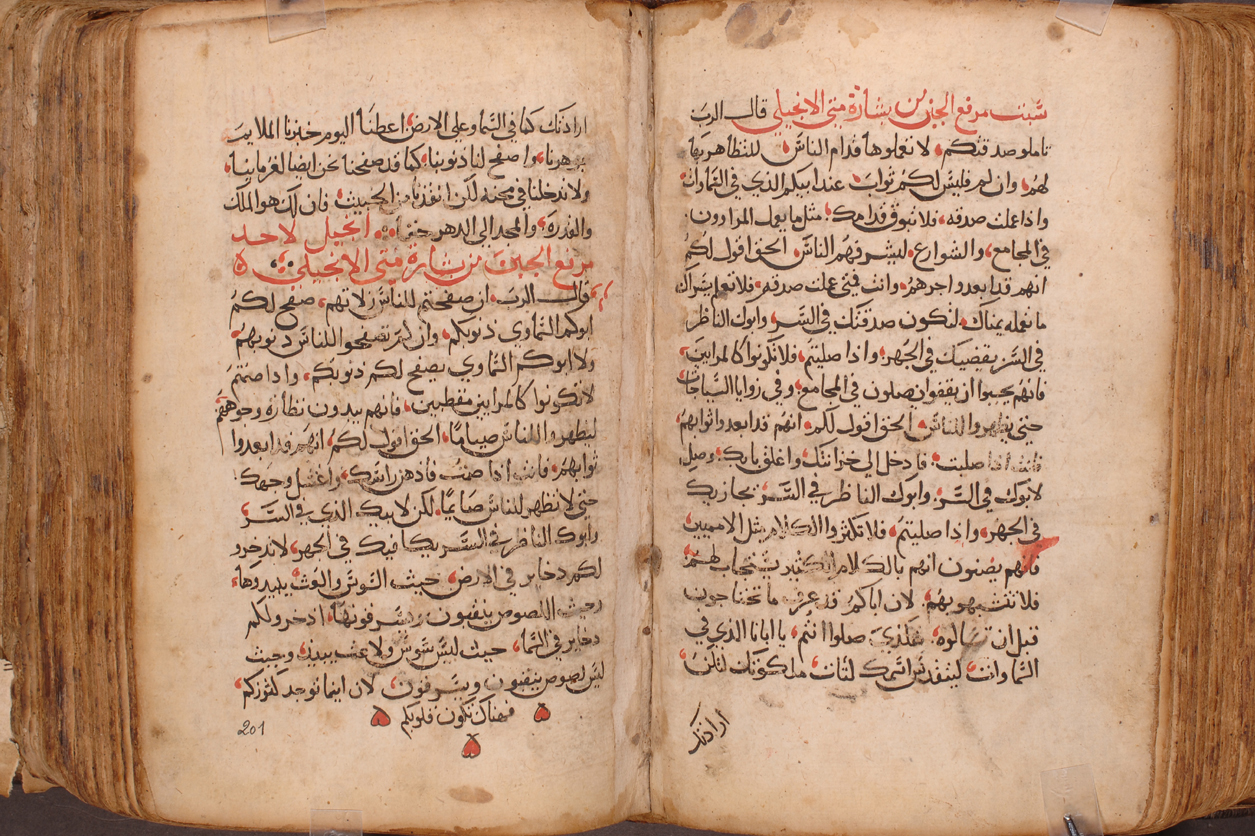 سبت مرفع الجبن من بشارة متى الانجيلي قال الرب
تاملو صدقتكم، لا تعملوها قدام الناس للتظاهر بها
لهم، وان لم فليس لكم ثواب عند ابيكم الذي في السماوات
واذا عملت صدقه، فلا تبوق قدامك، مثل ما يفعل المراوون
في المجامع، والشوارع، ليشرفهم الناس الحق اقول لكم
انهم قد ابعدوا جرهم، وانت فمتى عملت صدقه، فلا تعلم يسراك
ما تفعله يمناك، لتكون صدقتك في السر وابوك الناظر
في السر يقضيك في الجهر، واذا صليتم، فلا تكونوا كالمرايين،
فانهم يحبوا ان يقفوا يصلون في المجامع، وفي زوايا الساحات
حتى يظهروا للناس، الحق اقول لكم، انهم قد ابعدوا ثوابهم
فانت اذا صليت، فادخل الى خزانتك، واغلق بابك، وصل
لابوك في السر، وابوك الناظر في السر، يجازيك
في الجهر، واذا صليتم، فلا تكثروا الكلام مثل الاممين
فانهم يضنون انهم بالكلام الكثير يستجاب لهم
فلا تتشبهو بهم، لان اباكم قد عرف ما تحتاجون
قبل ان تسالوه، هكذي صلوا انتم، يا ابانا الذي في
السماوات، ليتقدس اسمك لتات ملكوتك لتكن،
ارادتك
ارادتك كما في السما وعلى الارض، اعطنا اليوم خبزنا الملايت
جوهرنا، واصفح لنا ذنوبنا، كما قد صفحنا نحن ايضا لغرماينا،
ولا تدخلنا في محنه لكن انقذنا من الخبيث، فان لك هو الملك
والقدرة، والمجد الى الدهر حقا انجيل لاحد
مرفع الجبن من بشارة متى الانجيلي
قال الرب، ان صفحتم للناس زلاتهم، صفح لكم
ابوكم السماوي ذنوبكم، وان لم تصفحوا للناس ذنوبهم
ولا ابوكم السماوي يصفح لكم ذنوبكم، واذا صمتم
لا تكونوا كالمرايين مقطبين، فانهم يبدون نظارة وجوههم
ليظهروا للناس صياما، الحق اقول لكم، انهم قد ابعدوا
ثوابهم، فانت اذا صمت فادهن راسك، واغسل وجهك
حتى لا تظهر للناس صايما، لكن لابيك الذي في السر،
وابوك الناظر في السر يكافيك في الجهر، لا تدخرو
لكم دخاير في الارض، حيث السوس والعث يبيدوها،
وحيث اللصوص ينقبون ويسرقونها، ادخرو لكم
دخاير في السما، حيث ليس سوس ولا عث يبيد، وحيث
ليس لصوص ينقبون ويسرقون، لان اينما توجد كنوزكم،
فهناك تكون قلوبكم
201